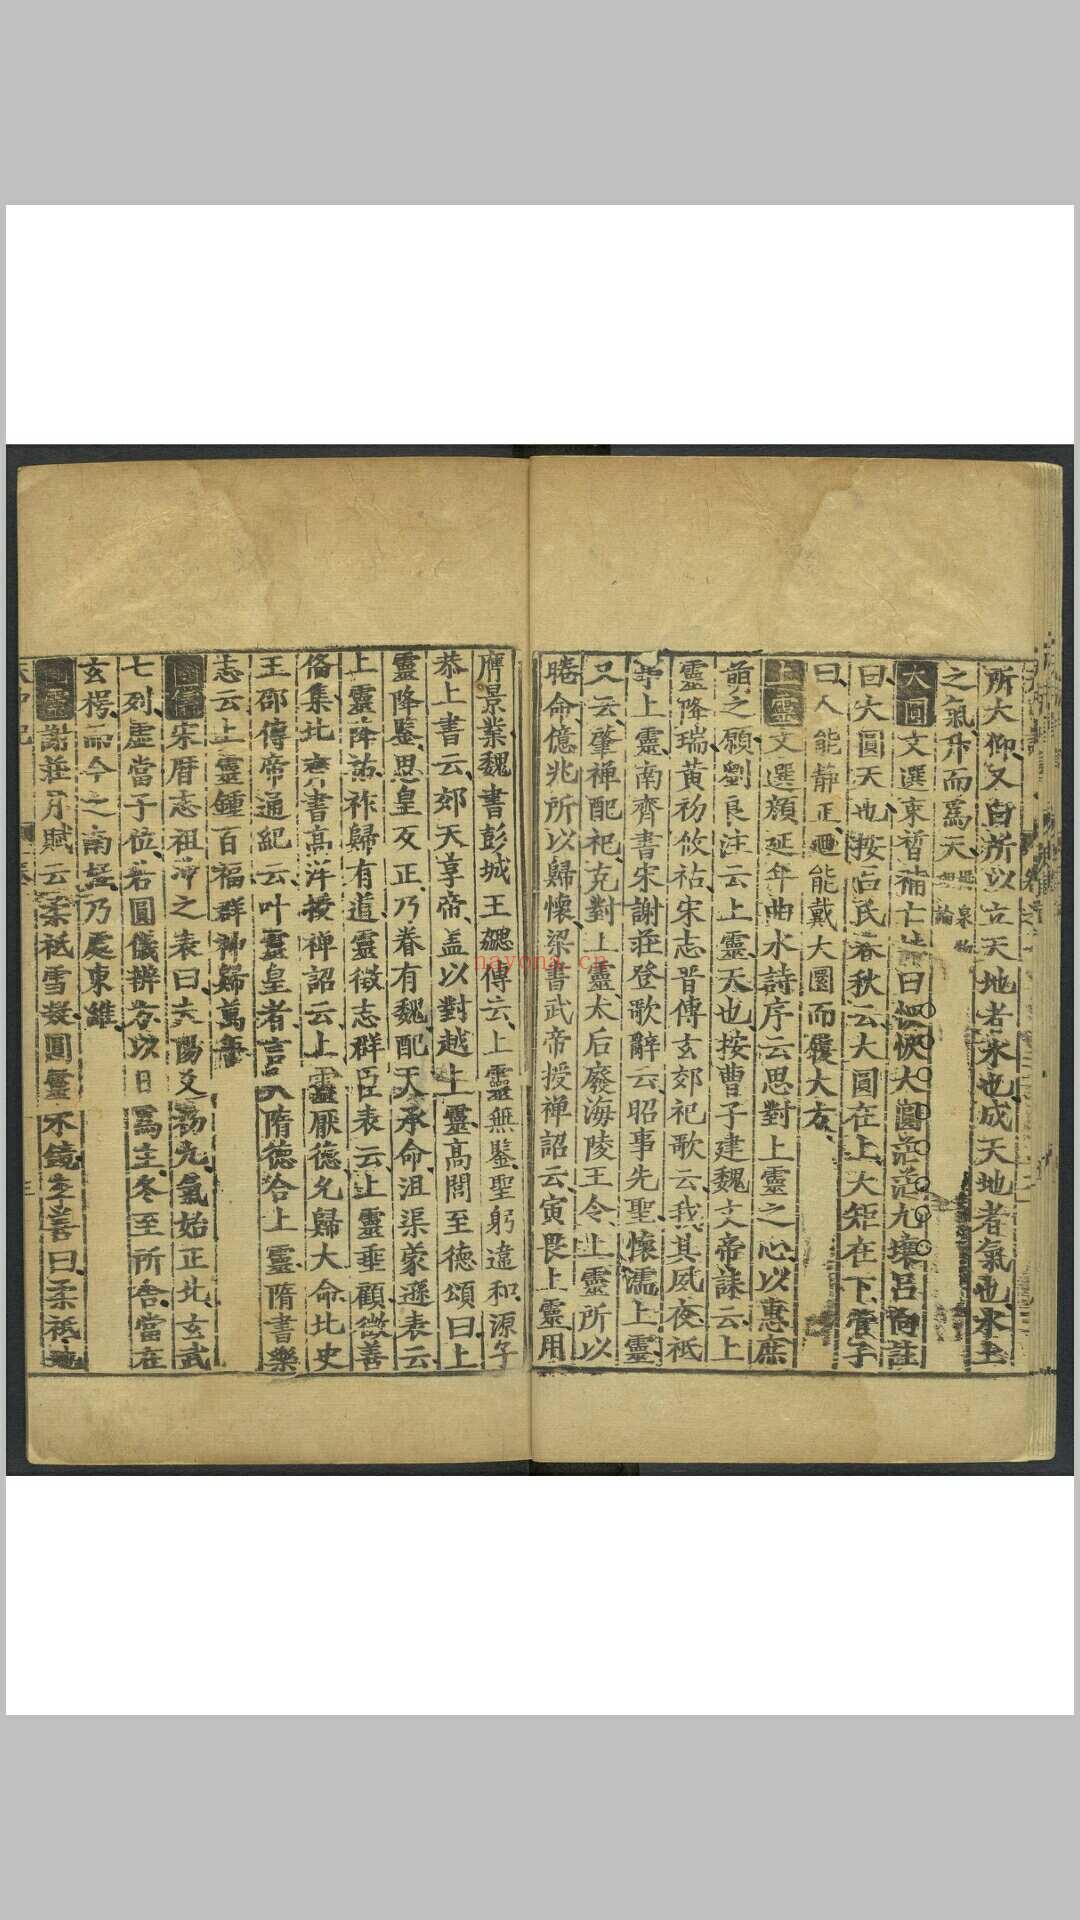 所大仰又曰所以立天地者水也成天地者氣也水土
之氣升而爲天楊泉物理論
大圓文選束皙補亡詩曰恢恢大圓茫茫九壤呂向註
曰大圓天也按呂氏春秋云大圓在上大矩在下管子
曰人能靜正廼能戴大圜而履大方
上靈文選顏延年曲水詩序云思對上靈之心以惠庶
萌之願劉良注云上靈天也按曹子建魏文帝誄云上
靈降瑞黃初攸祜宋志晉傅玄郊祀歌云我其夙夜祗
事上靈南齊書宋謝莊登歌辭云昭事先聖懷濡上靈
又云肇禋配祀克對上靈太后廢海陵王令上靈所以
睠命億兆所以歸懷梁書武帝授禪詔云寅畏上靈用
膺景業魏書彭城王勰傳云上靈無鑒聖躬違和源子
恭上書云郊天享帝蓋以對越上靈高閭至德頌曰上
靈降鑒思皇反正乃眷有魏配天承命沮渠蒙遜表云
上靈降祐祚歸有道靈徵志群臣表云上靈垂顧徵善
備集北齊書高洋授禪詔云上靈厭德允歸大命北史
王邵傳帝通紀云叶靈皇者言入隋德合上靈隋書樂
志云上靈鍾百福群神歸萬
圓儀宋曆志祖沖之表曰六陽爻氣始正北玄武
七列虛當子位若圓儀辨方以日爲主冬至所舍當在
玄枵而今之南極乃處東維
圓靈謝莊月賦云柔祗雪凝圓靈水鏡善曰柔祗地
天中記